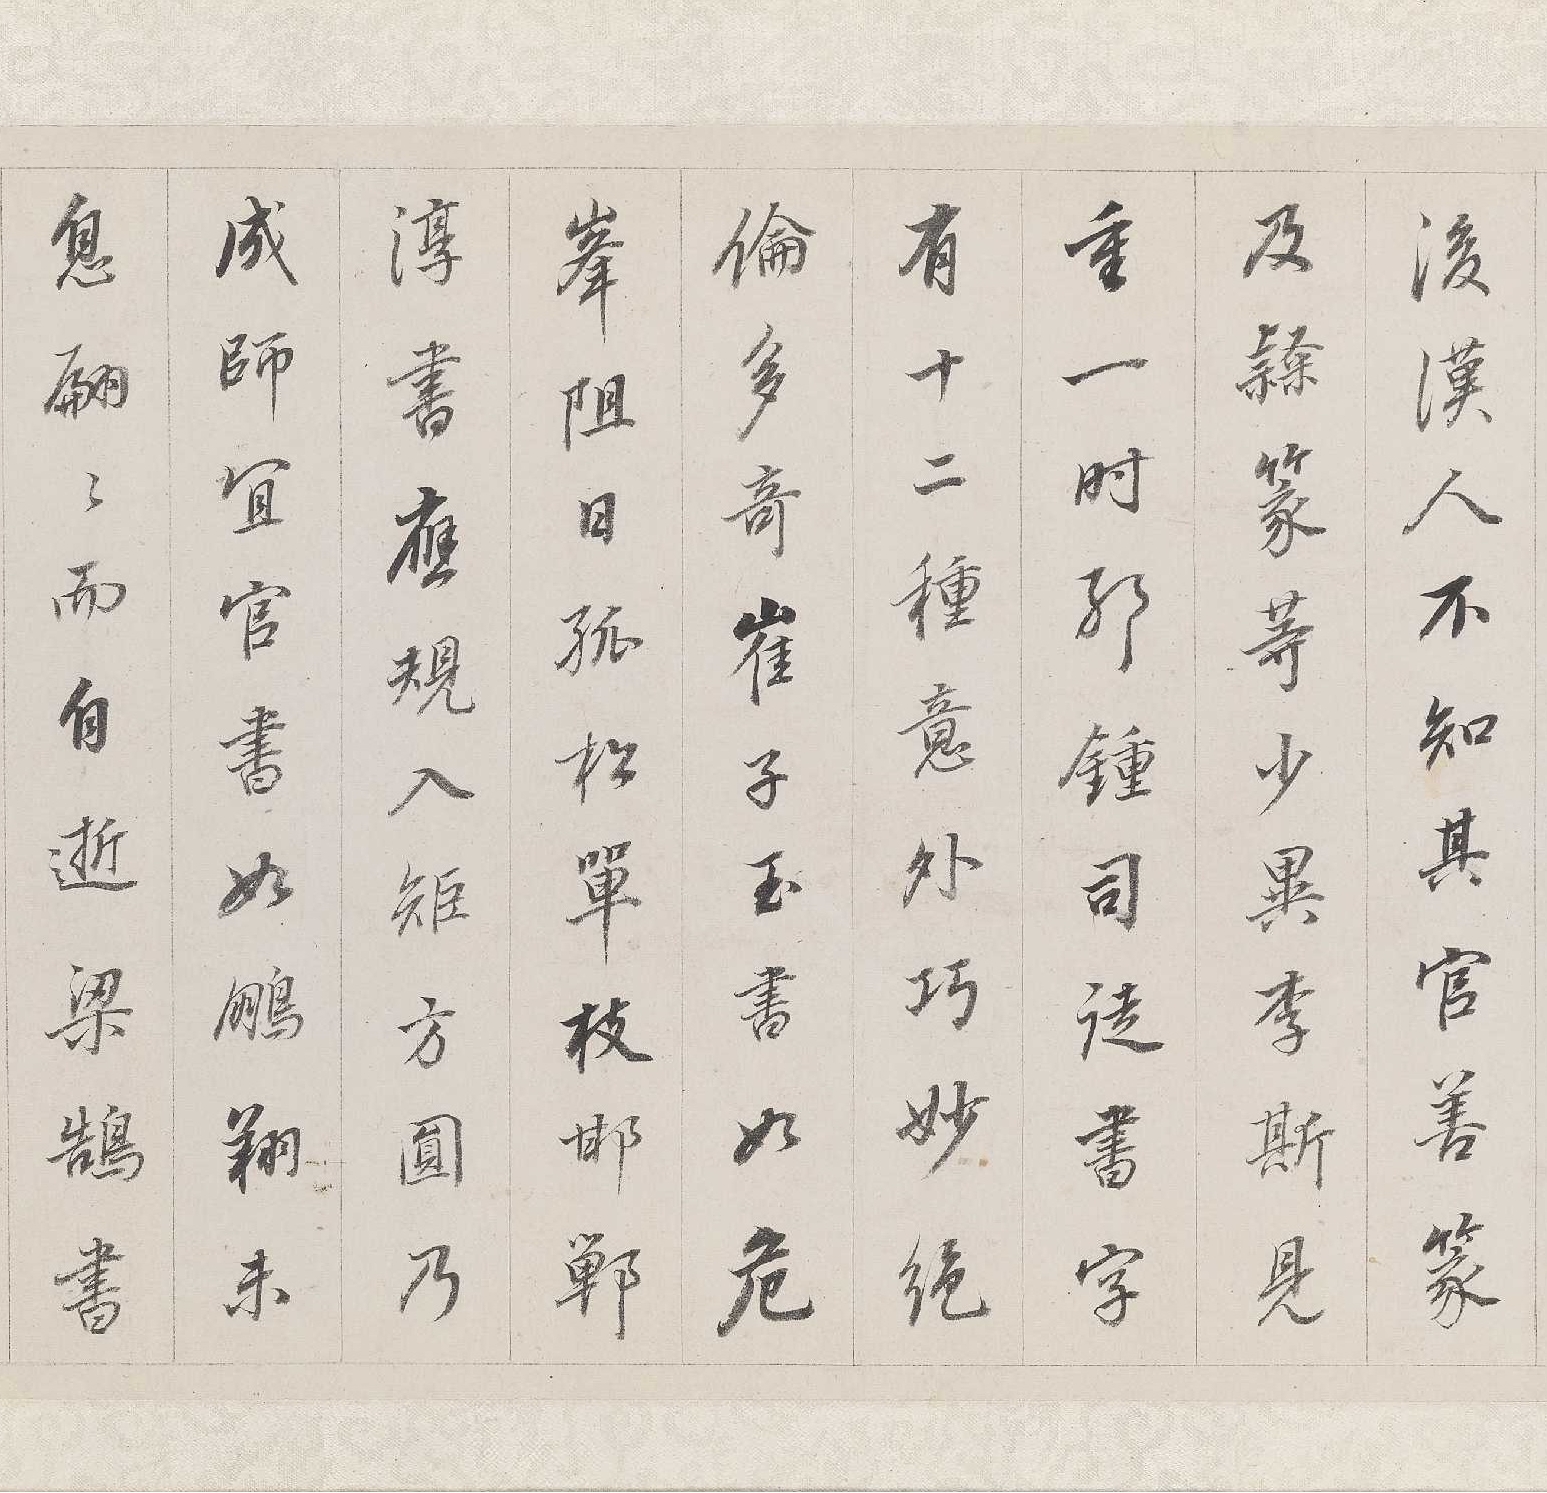 後漢人不知其官善篆
及隸篆等少異李斯見
重一时邪鍾司徒書字
有十二種意外巧妙絕
倫多奇崔子玉書如危
峯阻日孤松單枝邯鄲
淳書應規入矩方圓乃
成師宜官書如鵬翔未
息翩〻而自逝梁鵠書